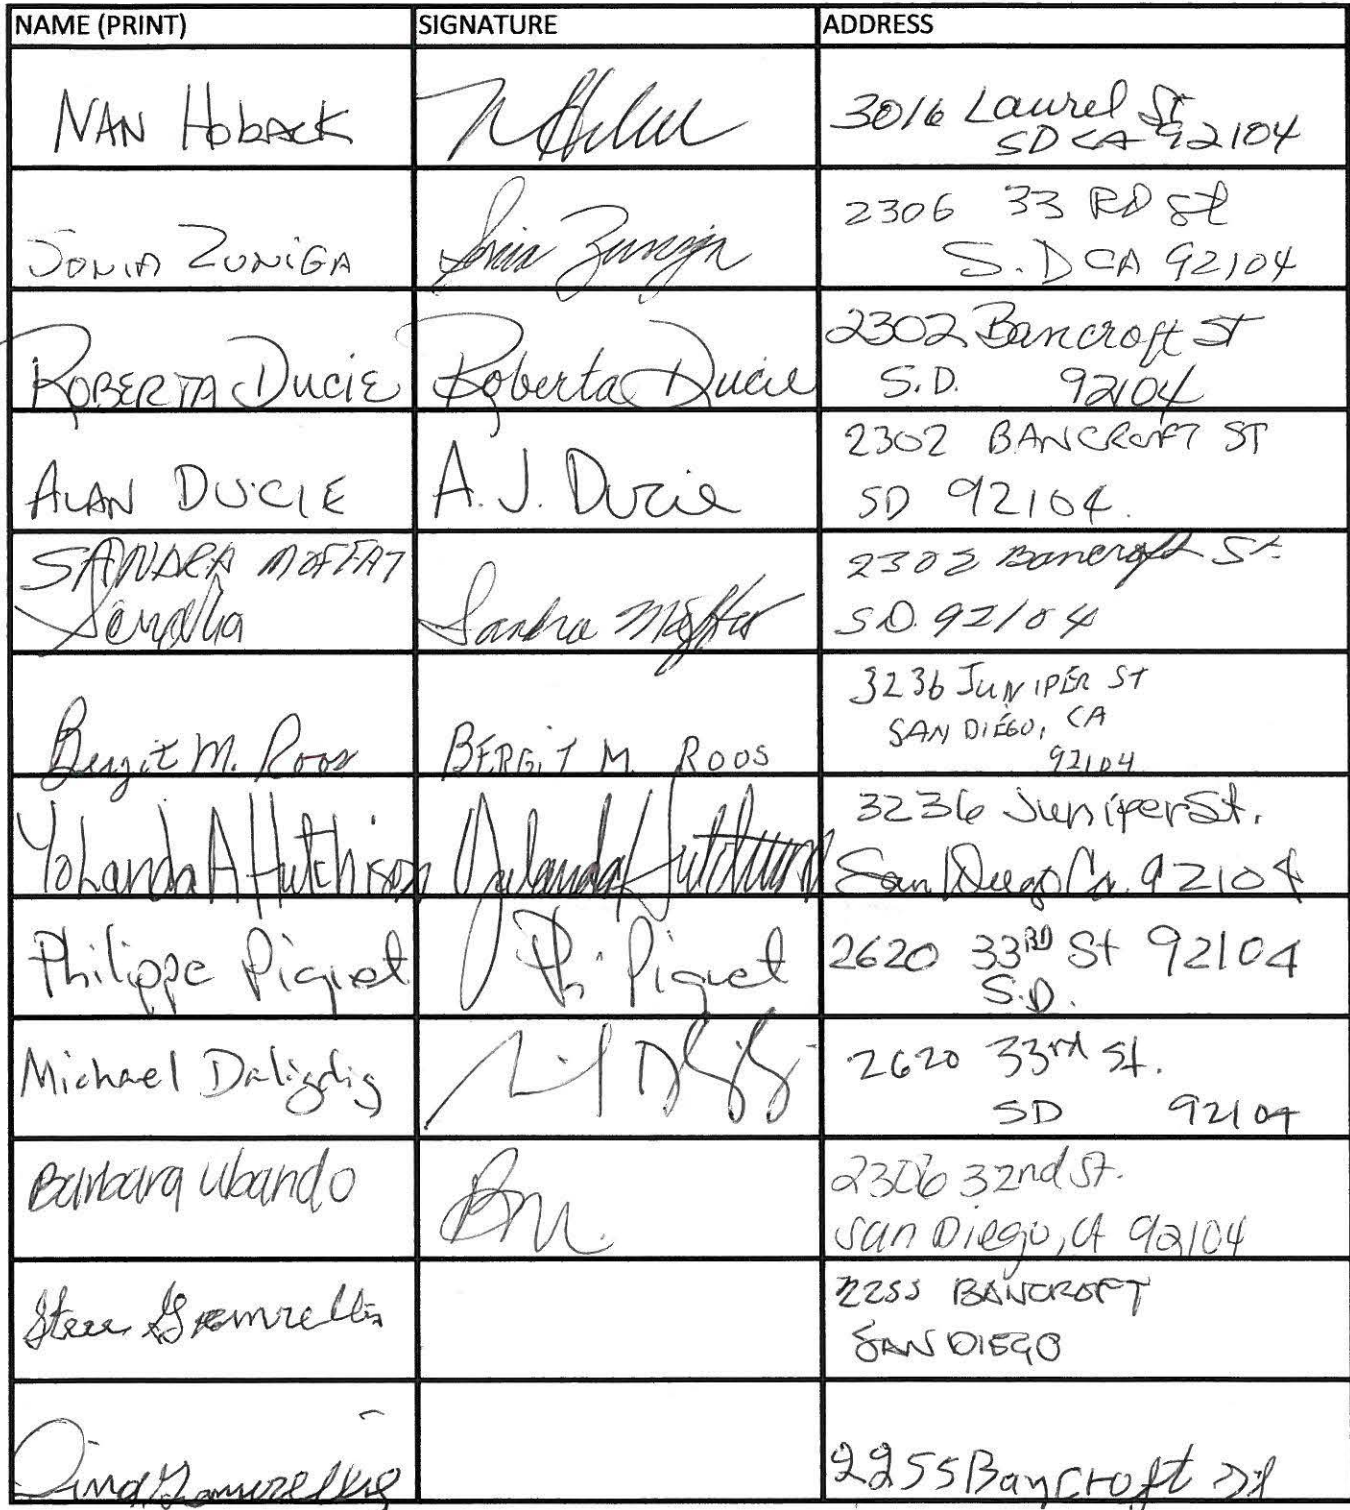 NAME (PRINT) SIGNATURE ADDRESS
NAN Hoback
3016 Laurel St
SD CA 92104
SONIA ZUNIGA Sonia Zuniga
2306 33 RD St
S.D CA 92104
ROBERTA DUCIE Roberta Ducie
2302 Bancroft ST
S.D. 92104
ALAN DUCIE A. J. Ducie
2302 BANCROFT ST
SD 92104.
SANDRA MOFFAT
Sandra
Sandra Moffat
2302 Bancroft St.
SD. 92104
Bergit M. Roos BERGIT M. ROOS
3236 JUNIPER ST
SAN DIEGO, CA
92104
Yolanda A Hutchison Yolanda Hutchison
3236 Juniper St.
San Diego Ca. 92104
Philippe Piquet Ph. Piquet
2620 33RD St 92104
S.D.
Michael Daligdig
2620 33rd St.
SD 92104
Barbara Ubando
2306 32nd St.
San Diego, CA 92104
Steve
2255 BANCROFT
SAN DIEGO
2255 Bancroft